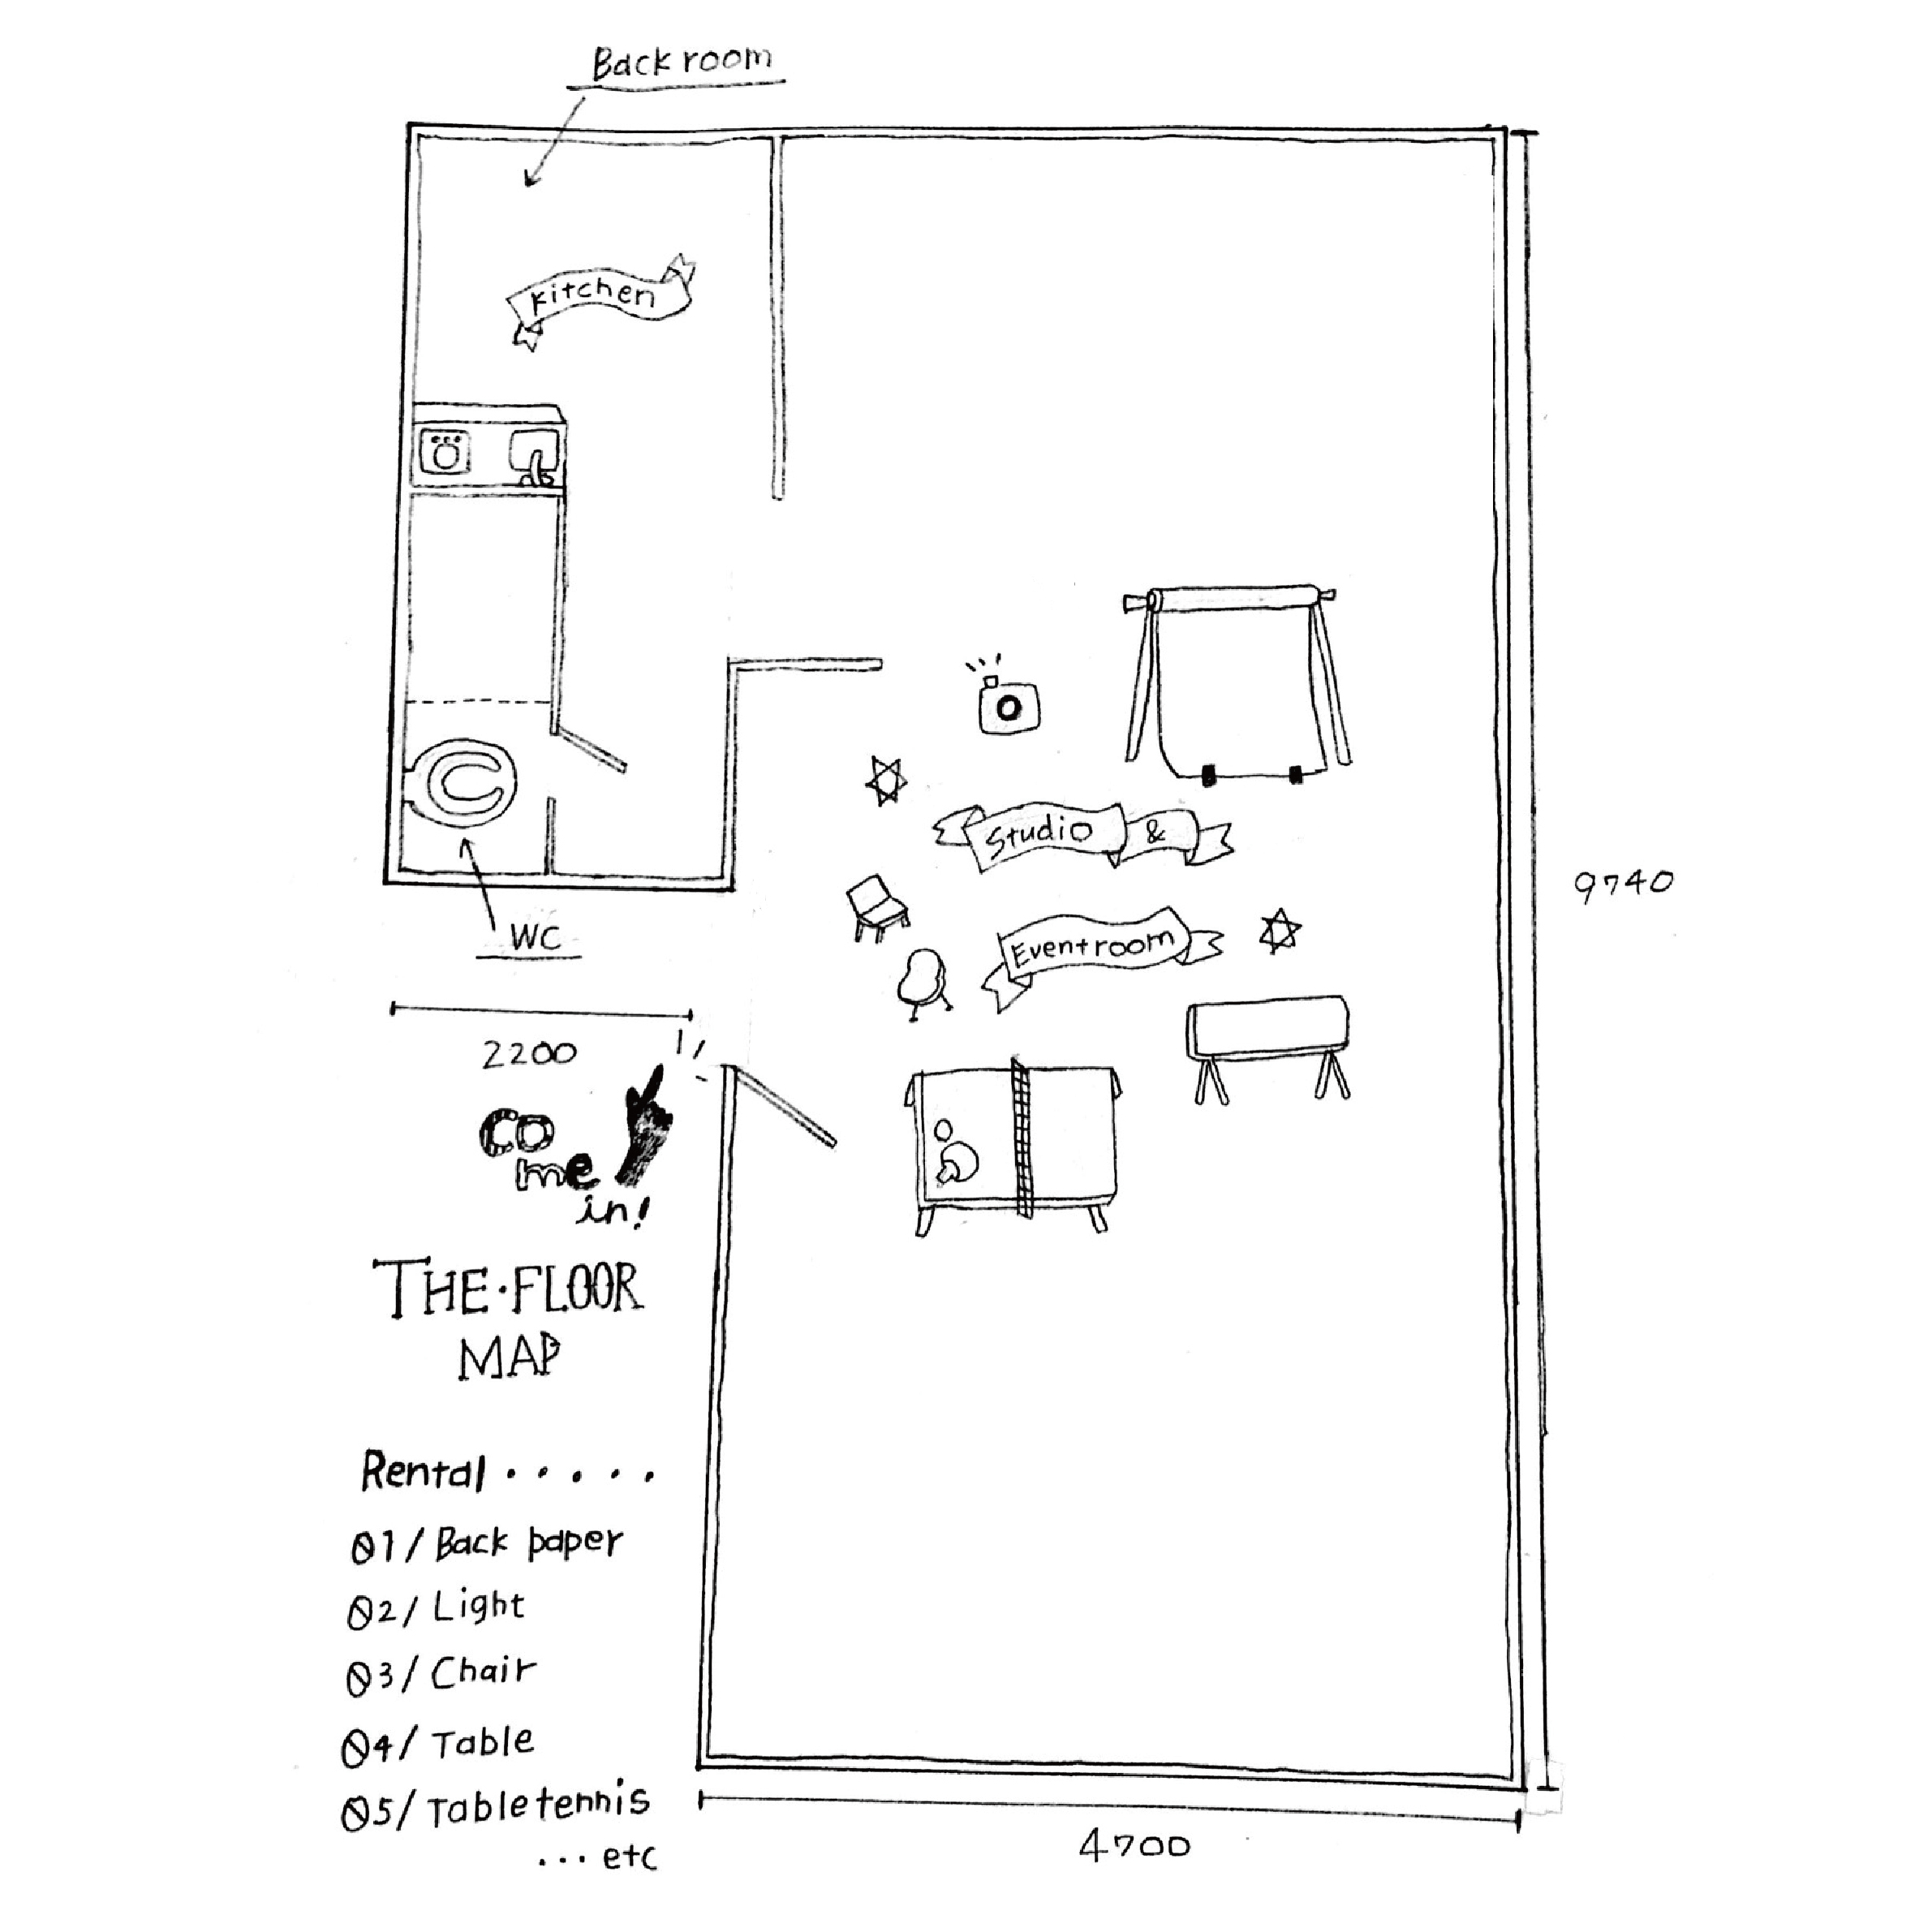 Back room
Kitchen
Studio &
Eventroom
WC
2200
9740
Co
me
in!
THE・FLOOR
MAP
Rental・・・・・
01/ Back paper
02/ Light
03/ Chair
04/ Table
05/ Tabletennis
...etc
4700